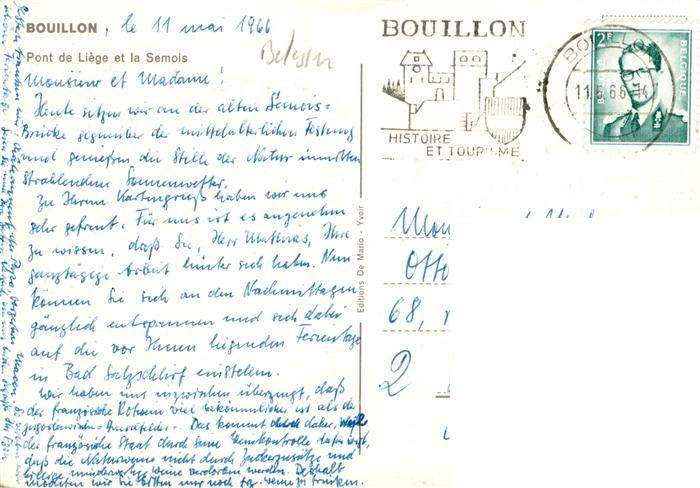 BOUILLON, le 11 mai 1966
Pont de Liège et la Semois
Monsieur et Madame!
Heute sitzen wir an der alten Semois=
Brücke gegenüber der mittelalterlichen Festung
und genießen die Stille der Natur inmitten
strahlendem Sonnenwetter.
Zu Ihrem Kartengruß haben wir uns
sehr gefreut. Für uns ist es angenehm
zu wissen, daß Sie, Herr Mathias, Ihre
ganztägige Arbeit hinter sich haben. Nun
können Sie sich an den Nachmittagen
gänzlich entspannen und sich dabei
auf die vor Ihnen liegenden Ferientage
in Bad Salzschlirf einstellen.
Wir haben uns inzwischen überzeugt, daß
der französische Rotwein viel bekömmlicher ist als die
Das kommt daher, weil
der französische Staat durch seine Weinkontrolle dafür sorgt,
daß die Naturweine nicht durch Zuckerzusätze und
billige minderwertige Weine verdorben werden. Deshalb
möchten wir Sie bitten nur noch frz. Weine zu trinken.
Editions De Mario - Yvoir
BOUILLON
HISTOIRE
ET TOURISME
BOUILLON
11.5.66
2F
BELGIQUE
Mon
Otto
68,
D